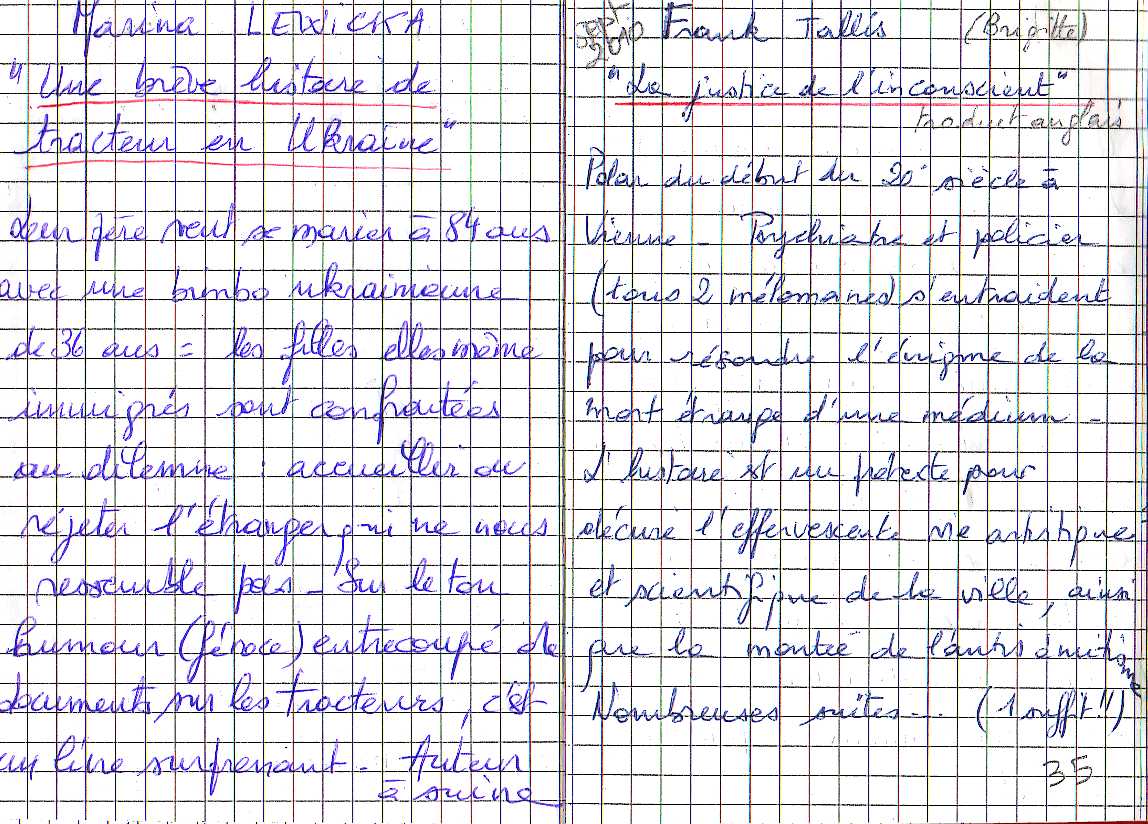 Marina LEWICKA
"Une brève histoire de
tracteur en Ukraine"
Leur père veut se marier à 84 ans
avec une bimbo ukrainienne
de 36 ans = les filles elles même
immigrés sont confrontées
au dilemme : accueillir ou
réjeter l'étranger qui ne nous
ressemble pas - Sur le ton
humour (féroce) entrecoupé de
documents sur les tracteurs, c'est
un livre surprenant - Auteur
à suivre
Sept 2010
Frank Tallis (Brigitte)
"La justice de l'inconscient"
traduct anglais
Polar du début du 20e siècle à
Vienne - Psychiatre et policier
(tous 2 mélomanes) s'entraident
pour résoudre l'énigme de la
mort étrange d'une médium -
L'histoire est un prétexte pour
décrire l'effervescente vie artistique
et scientifique de la ville, ainsi
que la montée de l'antisémitisme
Nombreuses suites... (1 suffit!!)
35